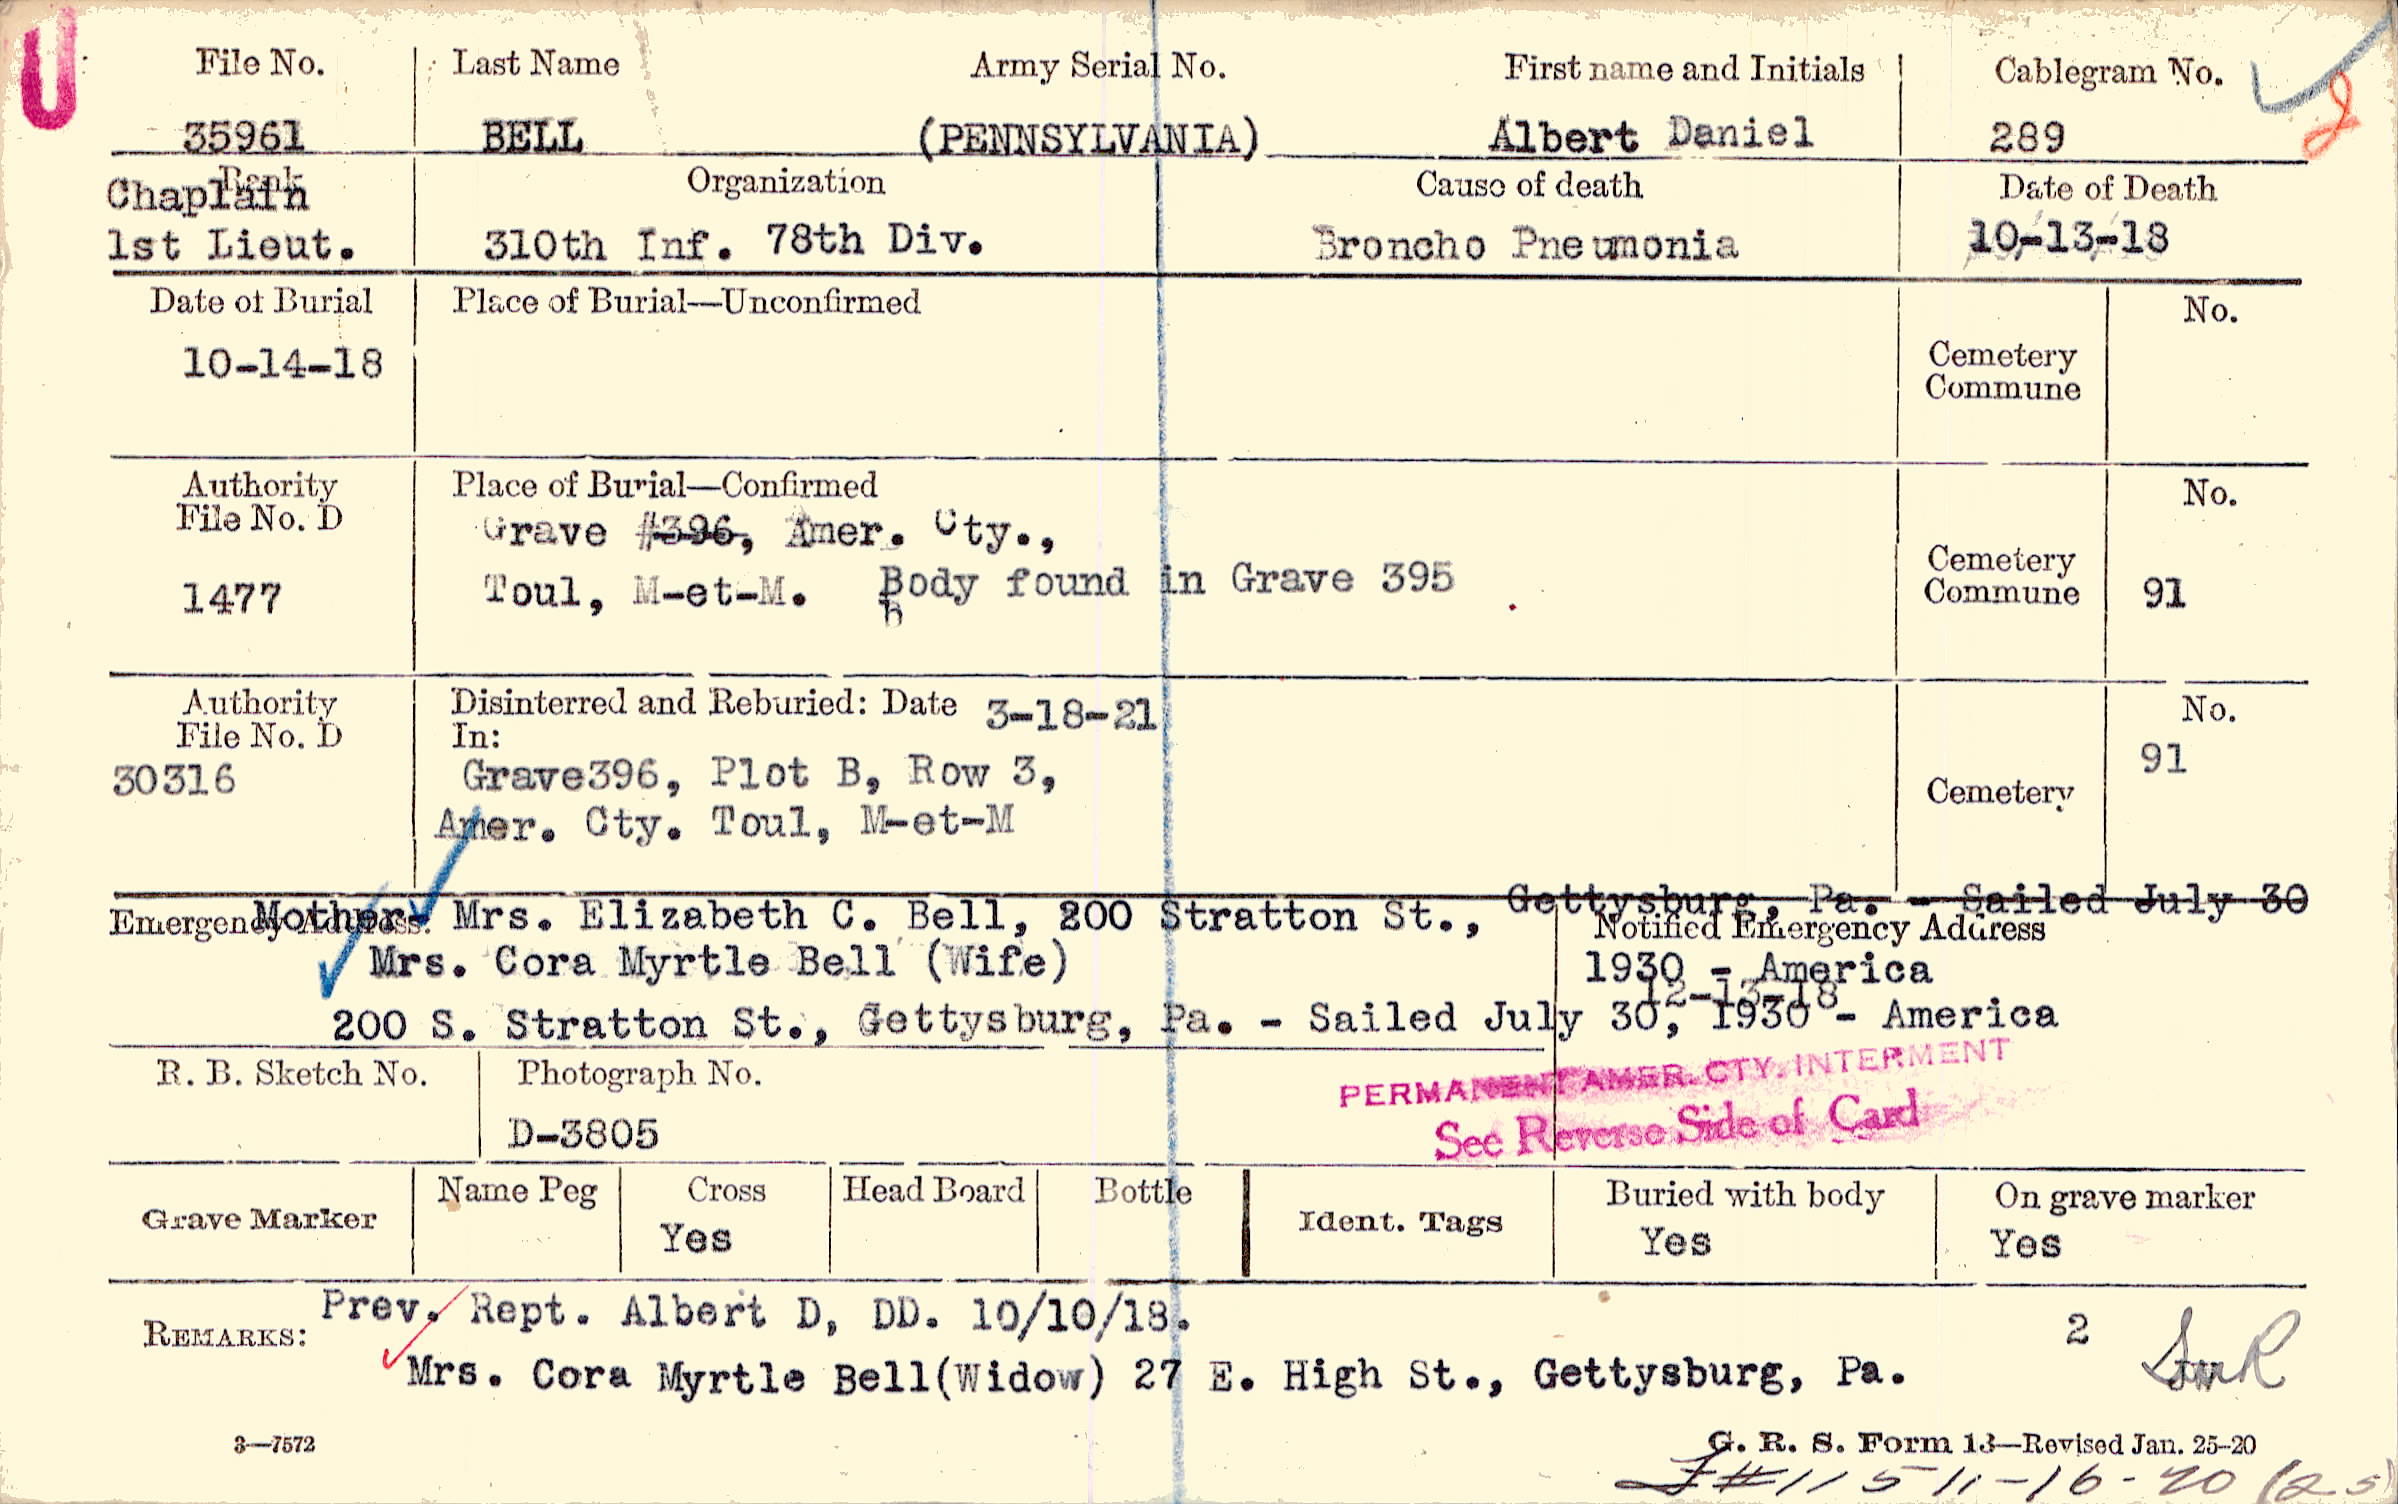 U
File No. Last Name Army Serial No. First name and Initials Cablegram No.
35961 BELL (PENNSYLVANIA) Albert Daniel 289
Rank Organization Cause of death Date of Death
Chaplain
1st Lieut. 310th Inf. 78th Div. Broncho Pneumonia 10-13-18
Date of Burial Place of Burial—Unconfirmed No.
10-14-18
Cemetery
Commune
Authority Place of Burial—Confirmed No.
File No. D
Grave #396, Amer. Cty.,
1477 Toul, M-et-M. Body found in Grave 395
Cemetery
Commune 91
Authority Disinterred and Reburied: Date 3-18-21 No.
File No. D In:
30316 Grave396, Plot B, Row 3, 91
Amer. Cty. Toul, M-et-M
Cemetery
Emergency Address: Mother- Mrs. Elizabeth C. Bell, 200 Stratton St., Gettysburg, Pa. - Sailed July 30
Notified Emergency Address
Mrs. Cora Myrtle Bell (Wife) 1930 - America
12-13-18
200 S. Stratton St., Gettysburg, Pa. - Sailed July 30, 1930 - America
R. B. Sketch No. Photograph No.
D-3805
PERMANENT AMER. CTY. INTERMENT
See Reverse Side of Card
Grave Marker Name Peg Cross Head Board Bottle Ident. Tags Buried with body On grave marker
Yes Yes Yes
REMARKS: Prev. Rept. Albert D, DD. 10/10/18. 2
Mrs. Cora Myrtle Bell(Widow) 27 E. High St., Gettysburg, Pa.
3—7572
G. R. S. Form 13—Revised Jan. 25-20